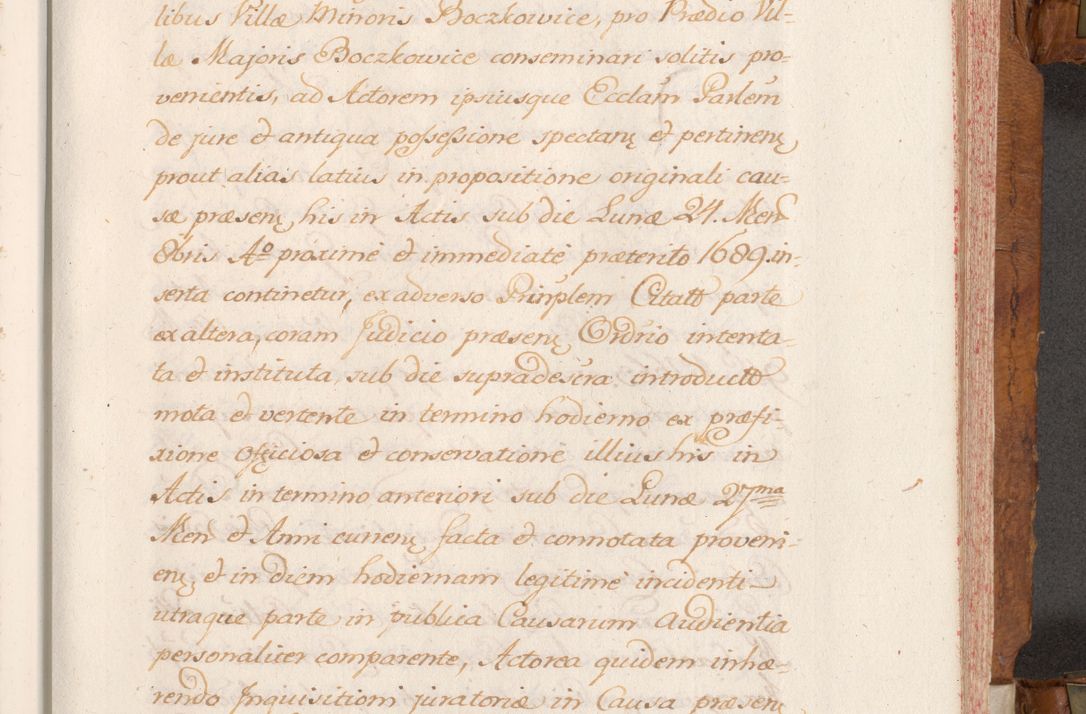 libus Villæ Minoris Boczkowice, pro Prædio Vil-
læ Majoris Boczkowice conseminari solitis pro-
venientis, ad Actorem ipsiusque Ecclam Parlem
de jure et antiqua possessione spectanę et pertinenę
prout alias latius in propositione originali cau-
sæ præsenę his in Actis sub die Lunæ 24. Men
8bris Ao proxime et immediate præterito 1689. in-
serta continetur, ex adverso Prinplem Citatt parte
ex altera, coram Judicio præsenę Ordrio intenta-
ta et instituta, sub die supradescra introductt
mota et vertente in termino hodierno ex præfi-
xione officiosa et conservatione illius his in
Actis in termino anteriori sub die Lunæ 27ma
Men et Anni currenę facta et connotata proveni-
enę, et in diem hodiernam legitime incidenti
utraque parte in publica Causarum Audientia
personaliter comparente, Actorea quidem inhæ-
rendo Inquisitioni juratoriæ in Causa præsenę